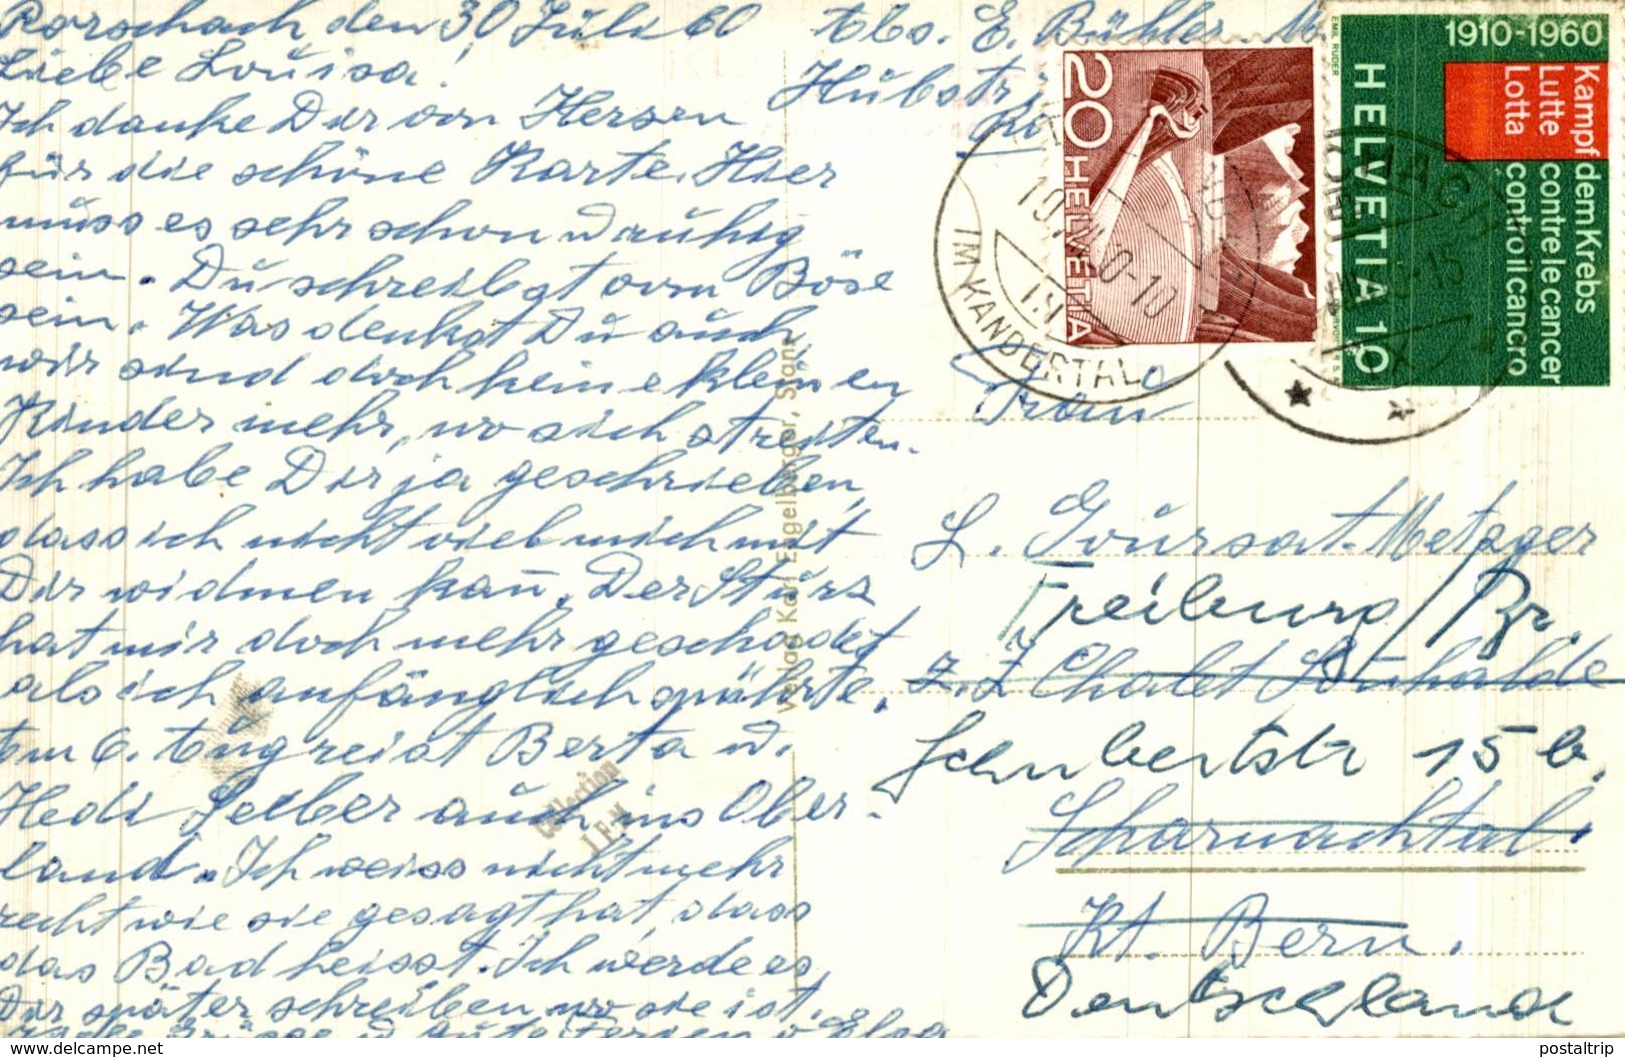 Rorschach den 30 Juli 60
Liebe Louisa!
Ich danke Dir von Herzen
für die schöne Karte. Hier
muss es sehr schon u ruhig
sein. Du schreibst vom Böse
sein. Was denkst Du auch,
wir sind doch keine kleinen
Kinder mehr, wo sich streiten.
Ich habe Dir ja geschrieben,
dass ich nicht viel mich mit
Dir widmen kañ. Der Sturz
hat mir doch mehr geschadet
als ich anfänglich spührte.
Am 6. Aug reist Berta u.
Hedi Selber auch ins Ober-
land. Ich weiss nicht mehr
recht wie sie gesagt hat, dass
das Bad heisst. Ich werde es
Dir später schreiben wo sie ist.
Grüsse u gute Ferien v Elsa
Abs. E. Bühler
Hubstr
Verlag Karl Engelberger, Stans
Collection
20 HELVETIA
IM KANDERTAL
1910-1960
Kampf dem Krebs
Lutte contre le cancer
Lotta contro il cancro
HELVETIA 10
EMIL RUDER
Frau
L. Goursat-Metzger
Freiburg/Br.
z. Z Chalet Sunhalde
Schubertstr 15 b.
Scharnachtal.
Kt. Bern.
Deutschland
www.delcampe.net
postaltrip